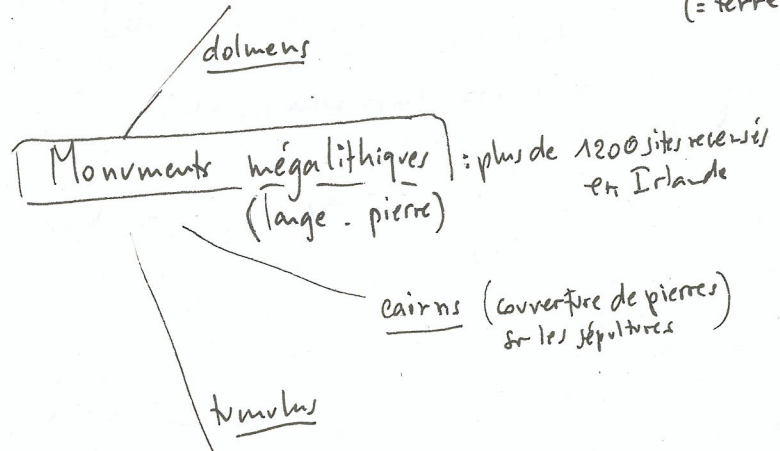 (= terre
dolmens
Monuments mégalithiques : plus de 1200 sites recensés
en Irlande
(large - pierre)
cairns (couverture de pierres)
sr les sépultures
tumulus